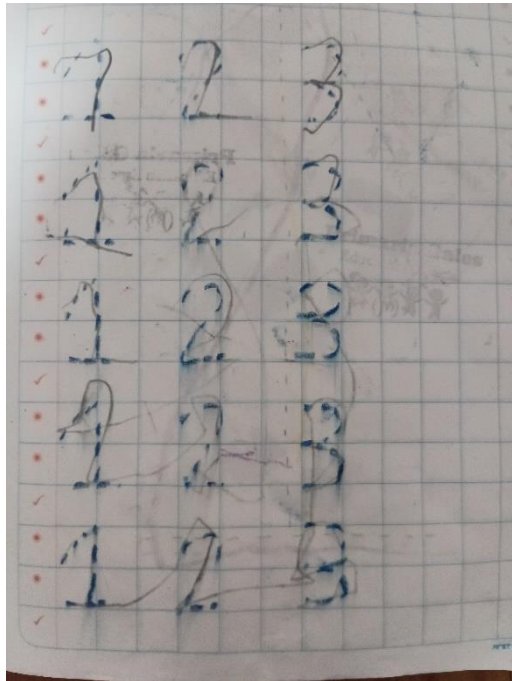 1 2 3
1 2 3
1 2 3
1 2 3
1 2 3